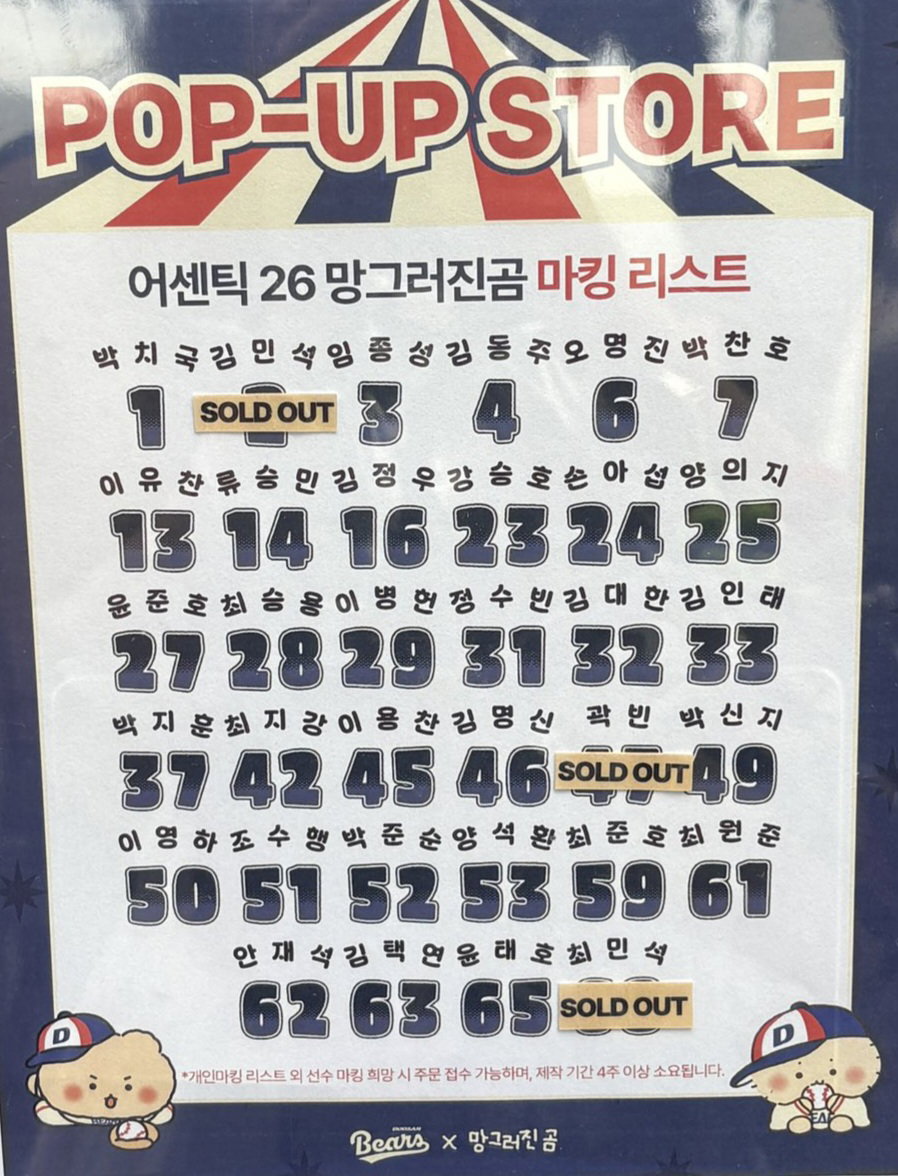 POP-UP STORE
어센틱 26 망그러진곰 마킹 리스트
박치국 김민석 임종성 김동주 오명진 박찬호
1 SOLD OUT 3 4 6 7
이유찬 류승민 김정우 강승호 손아섭 양의지
13 14 16 23 24 25
윤준호 최승용 이병헌 정수빈 김대한 김인태
27 28 29 31 32 33
박지훈 최지강 이용찬 김명신 곽빈 박신지
37 42 45 46 SOLD OUT 49
이영하 조수행 박준순 양석환 최준호 최원준
50 51 52 53 59 61
안재석 김택연 윤태호 최민석
62 63 65 SOLD OUT
D
D
*개인마킹 리스트 외 선수 마킹 희망 시 주문 접수 가능하며, 제작 기간 4주 이상 소요됩니다.
DOOSAN
Bears × 망그러진 곰